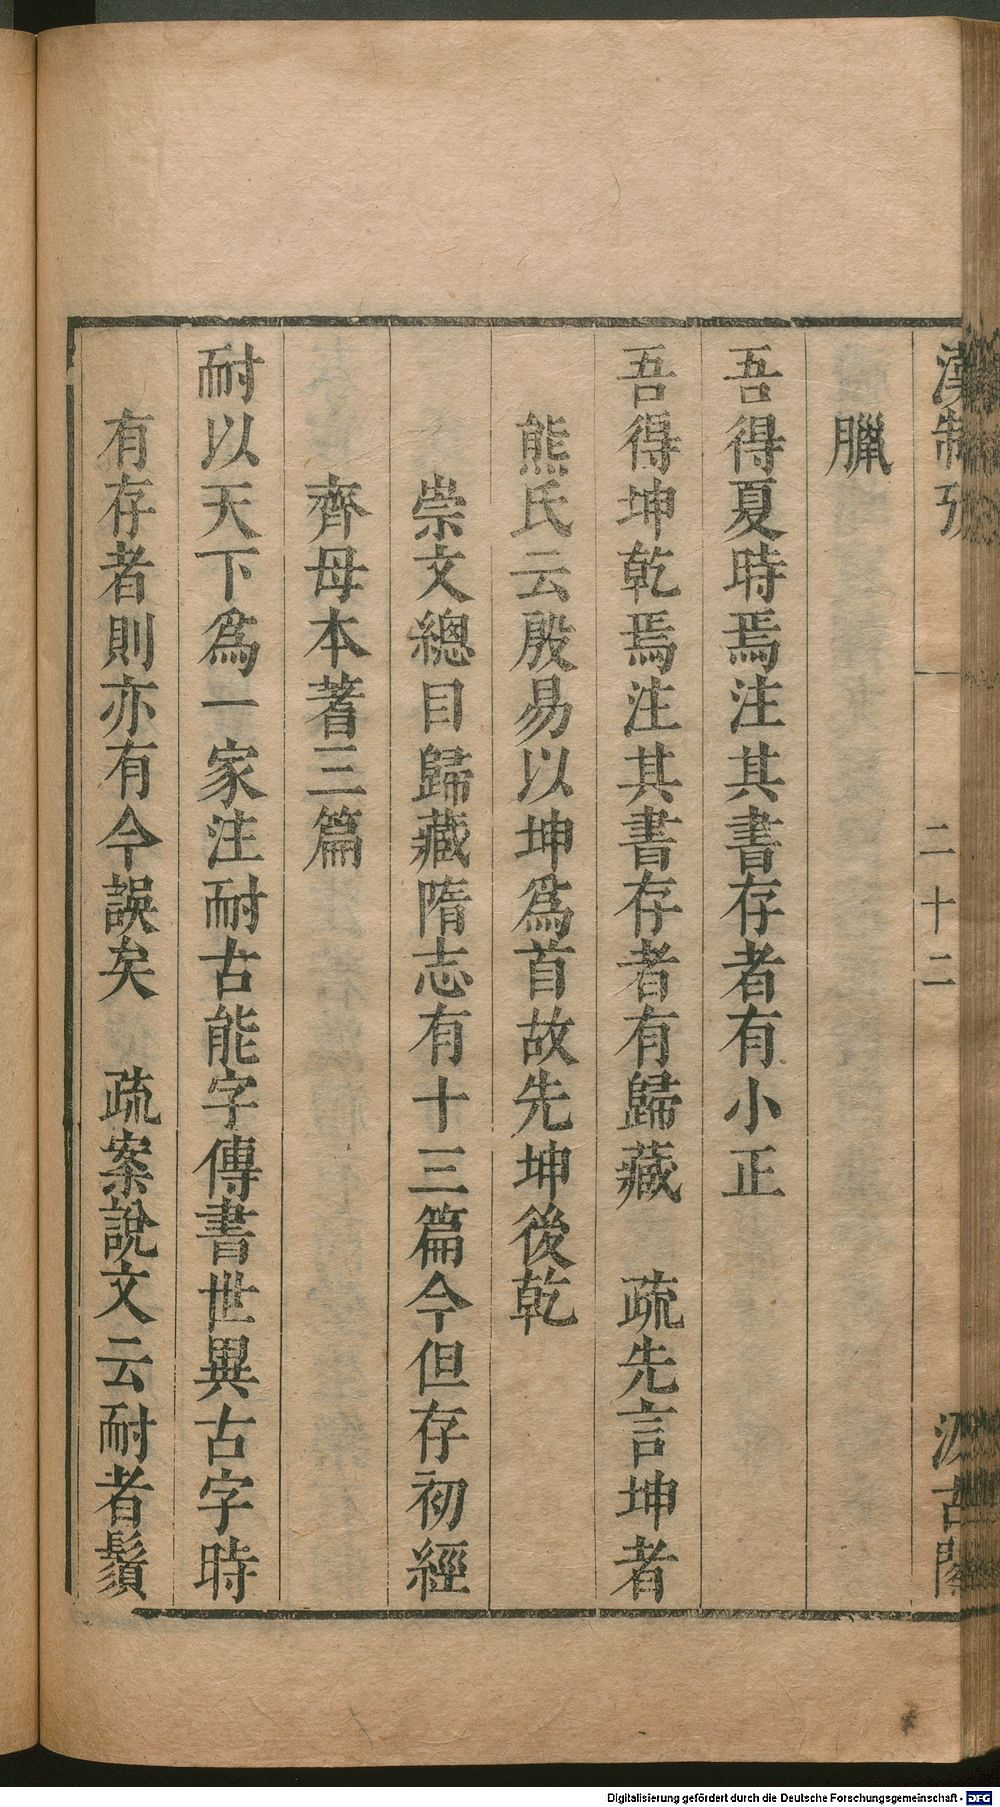 漢制攷
二十二
汲古閣
臘
吾得夏時焉注其書存者有小正
吾得坤乾焉注其書存者有歸藏　疏先言坤者
熊氏云殷易以坤爲首故先坤後乾
崇文總目歸藏隋志有十三篇今但存初經
齊母本蓍三篇
耐以天下爲一家注耐古能字傳書世異古字時
有存者則亦有今誤矣　疏案說文云耐者鬚
Digitalisierung gefördert durch die Deutsche Forschungsgemeinschaft - DFG